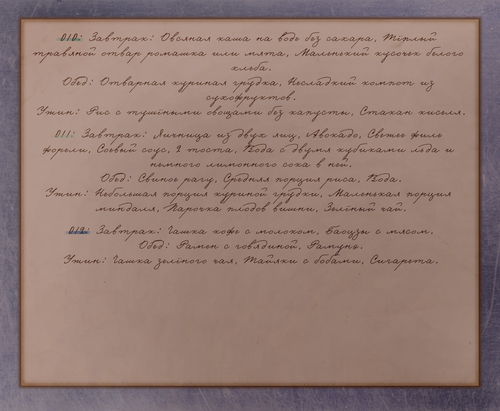 010: Завтрак: Овсяная каша на воде без сахара, Тёплый
травяной отвар ромашка или мята, Маленький кусочек белого
хлеба.
Обед: Отварная куриная грудка, Несладкий компот из
сухофруктов.
Ужин: Рис с тушёными овощами без капусты, Стакан киселя.
011: Завтрак: Яичница из двух яиц, Авокадо, Свежее филе
форели, Соевый соус, 2 тоста, Вода с двумя кубиками льда и
немного лимонного сока в ней.
Обед: Свиное рагу, Средняя порция риса, Вода.
Ужин: Небольшая порция куриной грудки, Маленькая порция
миндаля, Парочка плодов вишни, Зелёный чай.
012: Завтрак: Чашка кофе с молоком, Баоцзы с мясом.
Обед: Рамен с говядиной, Рамунэ.
Ужин: Чашка зелёного чая, Тайяки с бобами, Сигарета.